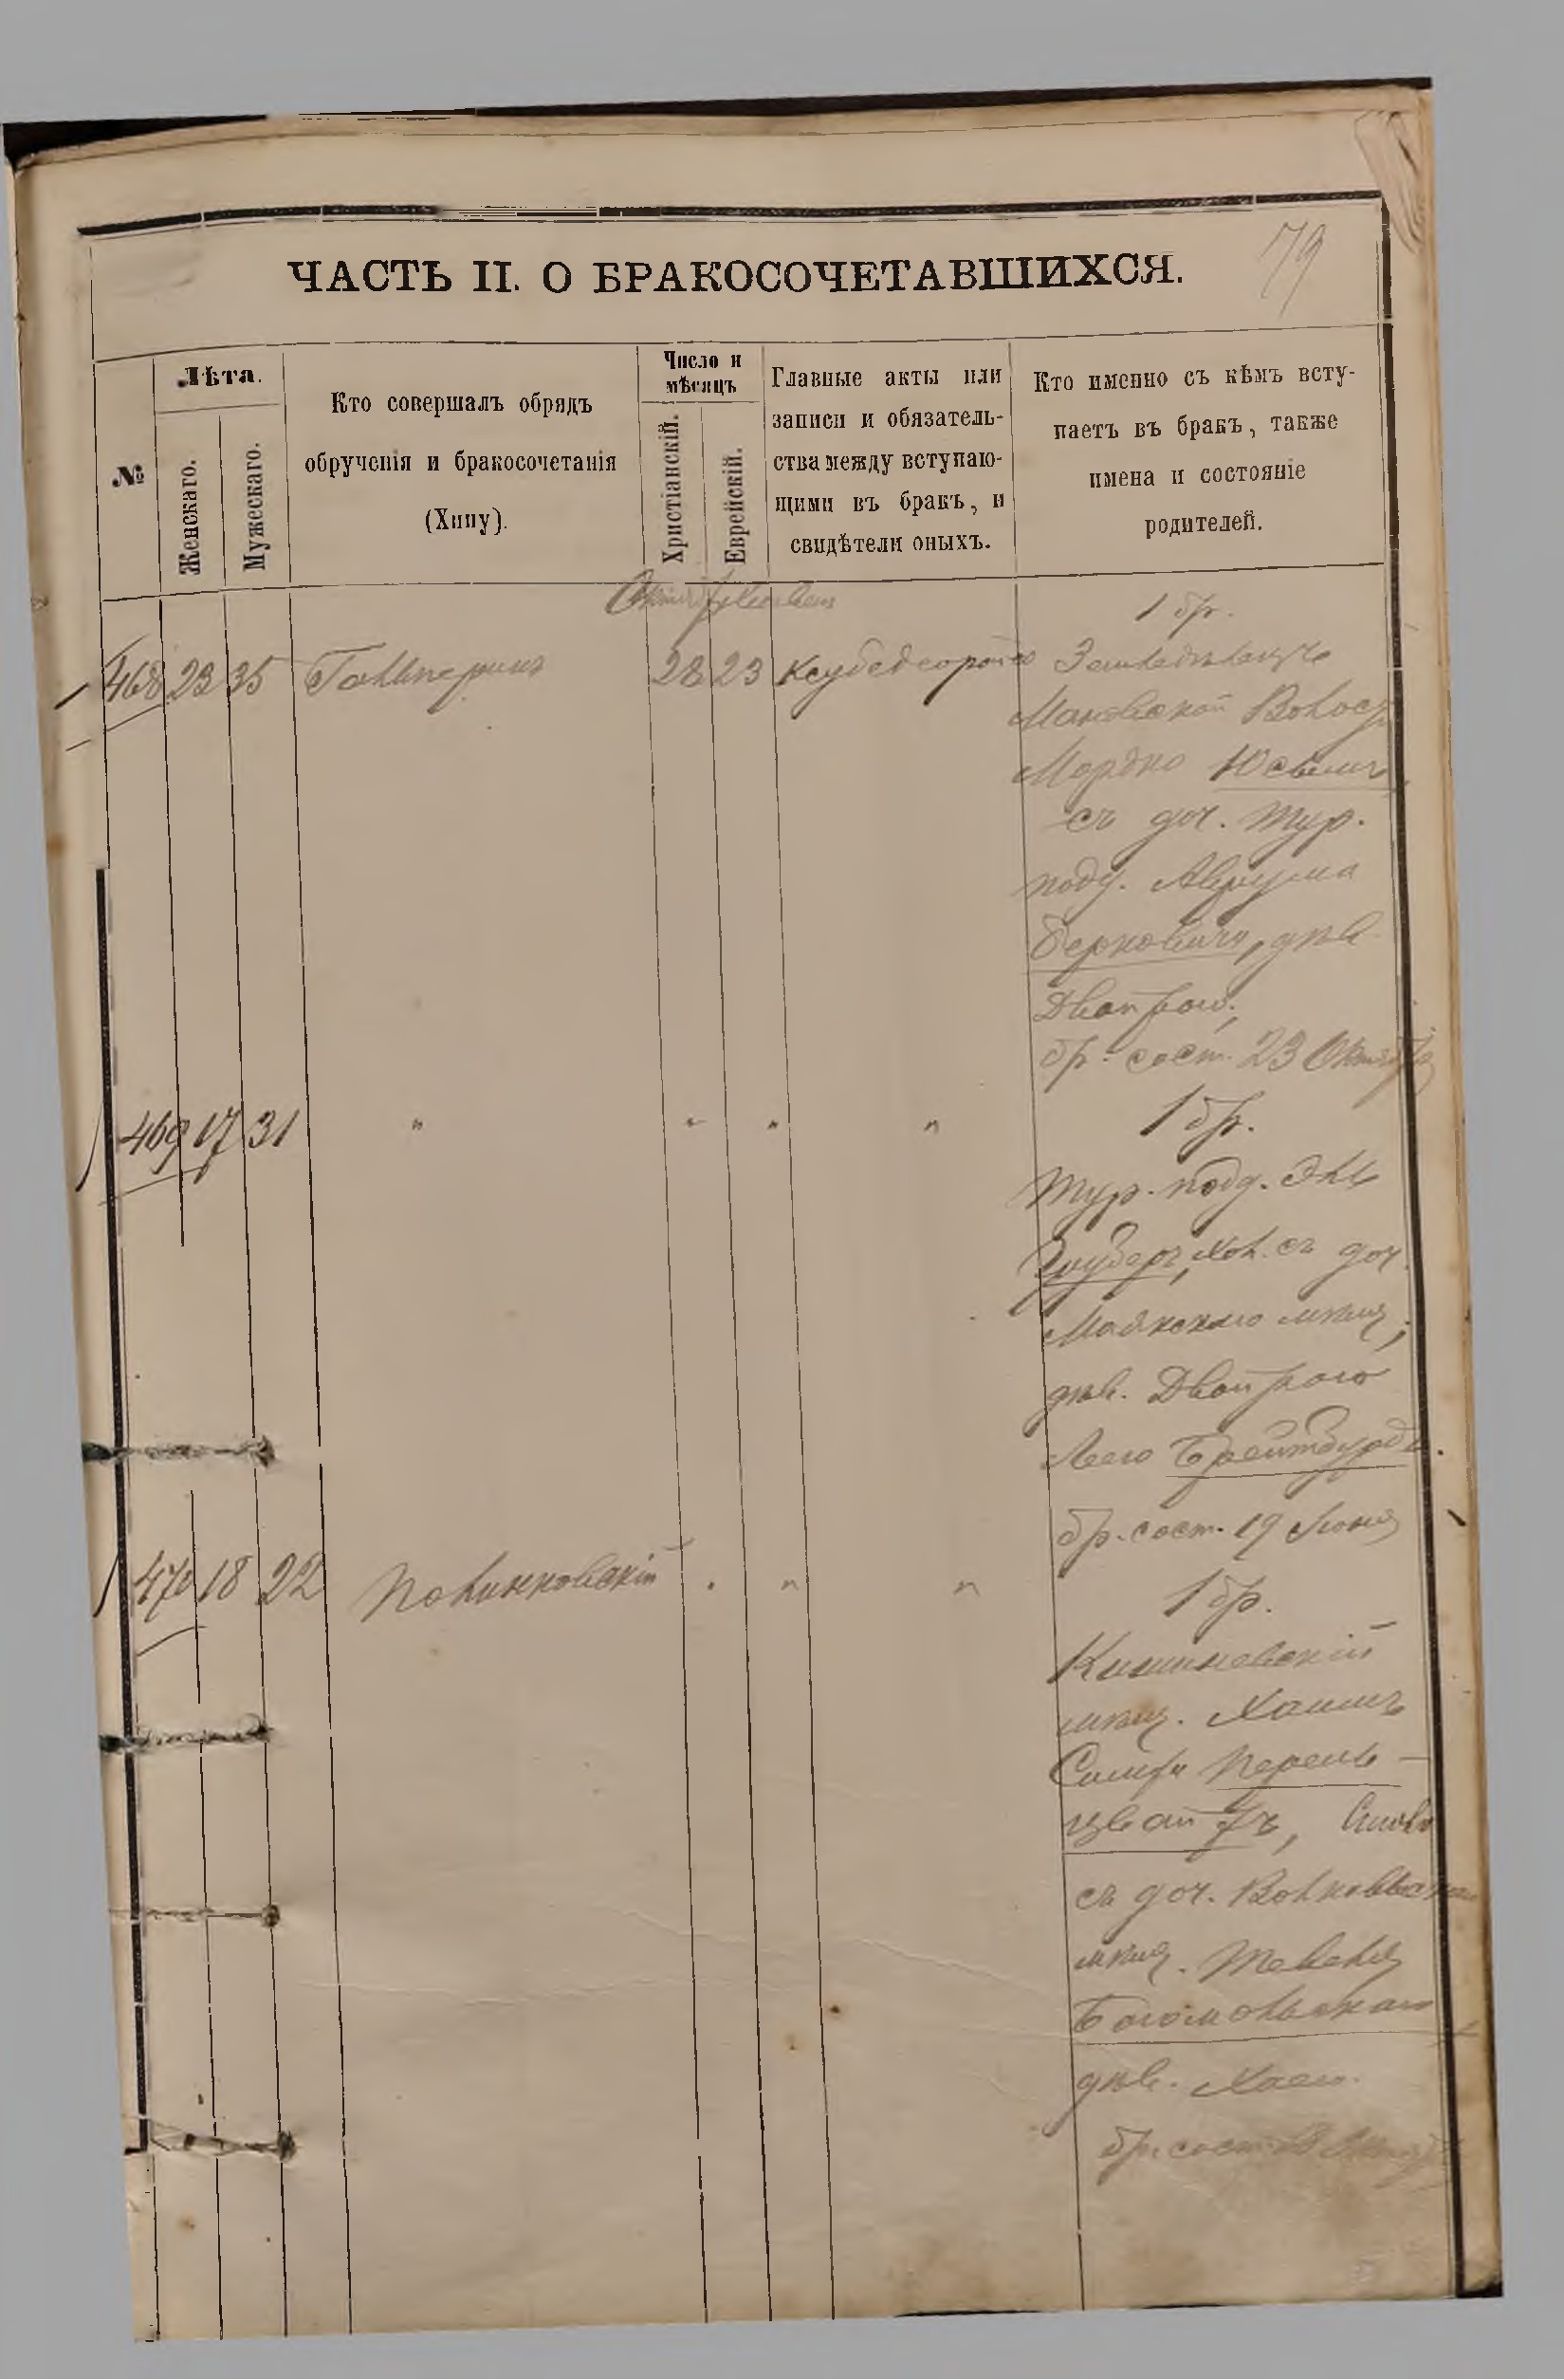 79
ЧАСТЬ II. О БРАКОСОЧЕТАВШИХСЯ.
№
Лѣта.
Женскаго.
Мужескаго.
Кто совершалъ обрядъ
обрученія и бракосочетанія
(Хипу).
Число и
мѣсяцъ
Христіанскій.
Еврейскій.
Главные акты или
записи и обязатель-
ства между вступаю-
щими въ бракъ, и
свидѣтели оныхъ.
Кто именно съ кѣмъ всту-
паетъ въ бракъ, также
имена и состояніе
родителей.
1 бр.
468 23 35 Гальперинъ 28 23 Земледѣлецъ
Маяковской Волос
Мордко Юсимъ,
съ доч. тур.
подд. Аврума
Берковича, дѣв.
Двойрою.
бр. сост. 23 Октября
469 17 31 " " " " 1 бр.
Тур. подд. Эль
Грубертъ, хол. съ доч.
Маякскаго мѣщ.,
дѣв. Двойрою
Леею Брейтбурдъ.
бр. сост. 19 Іюня
470 18 22 Полинковскій . " " 1 бр.
Кишиневскій
мѣщ. Хаимъ
Перель-
цвайгъ,
съ доч. Волковыскаго
мѣщ. Тевеля
Богомольскаго
дѣв. Хаею.
бр. сост.